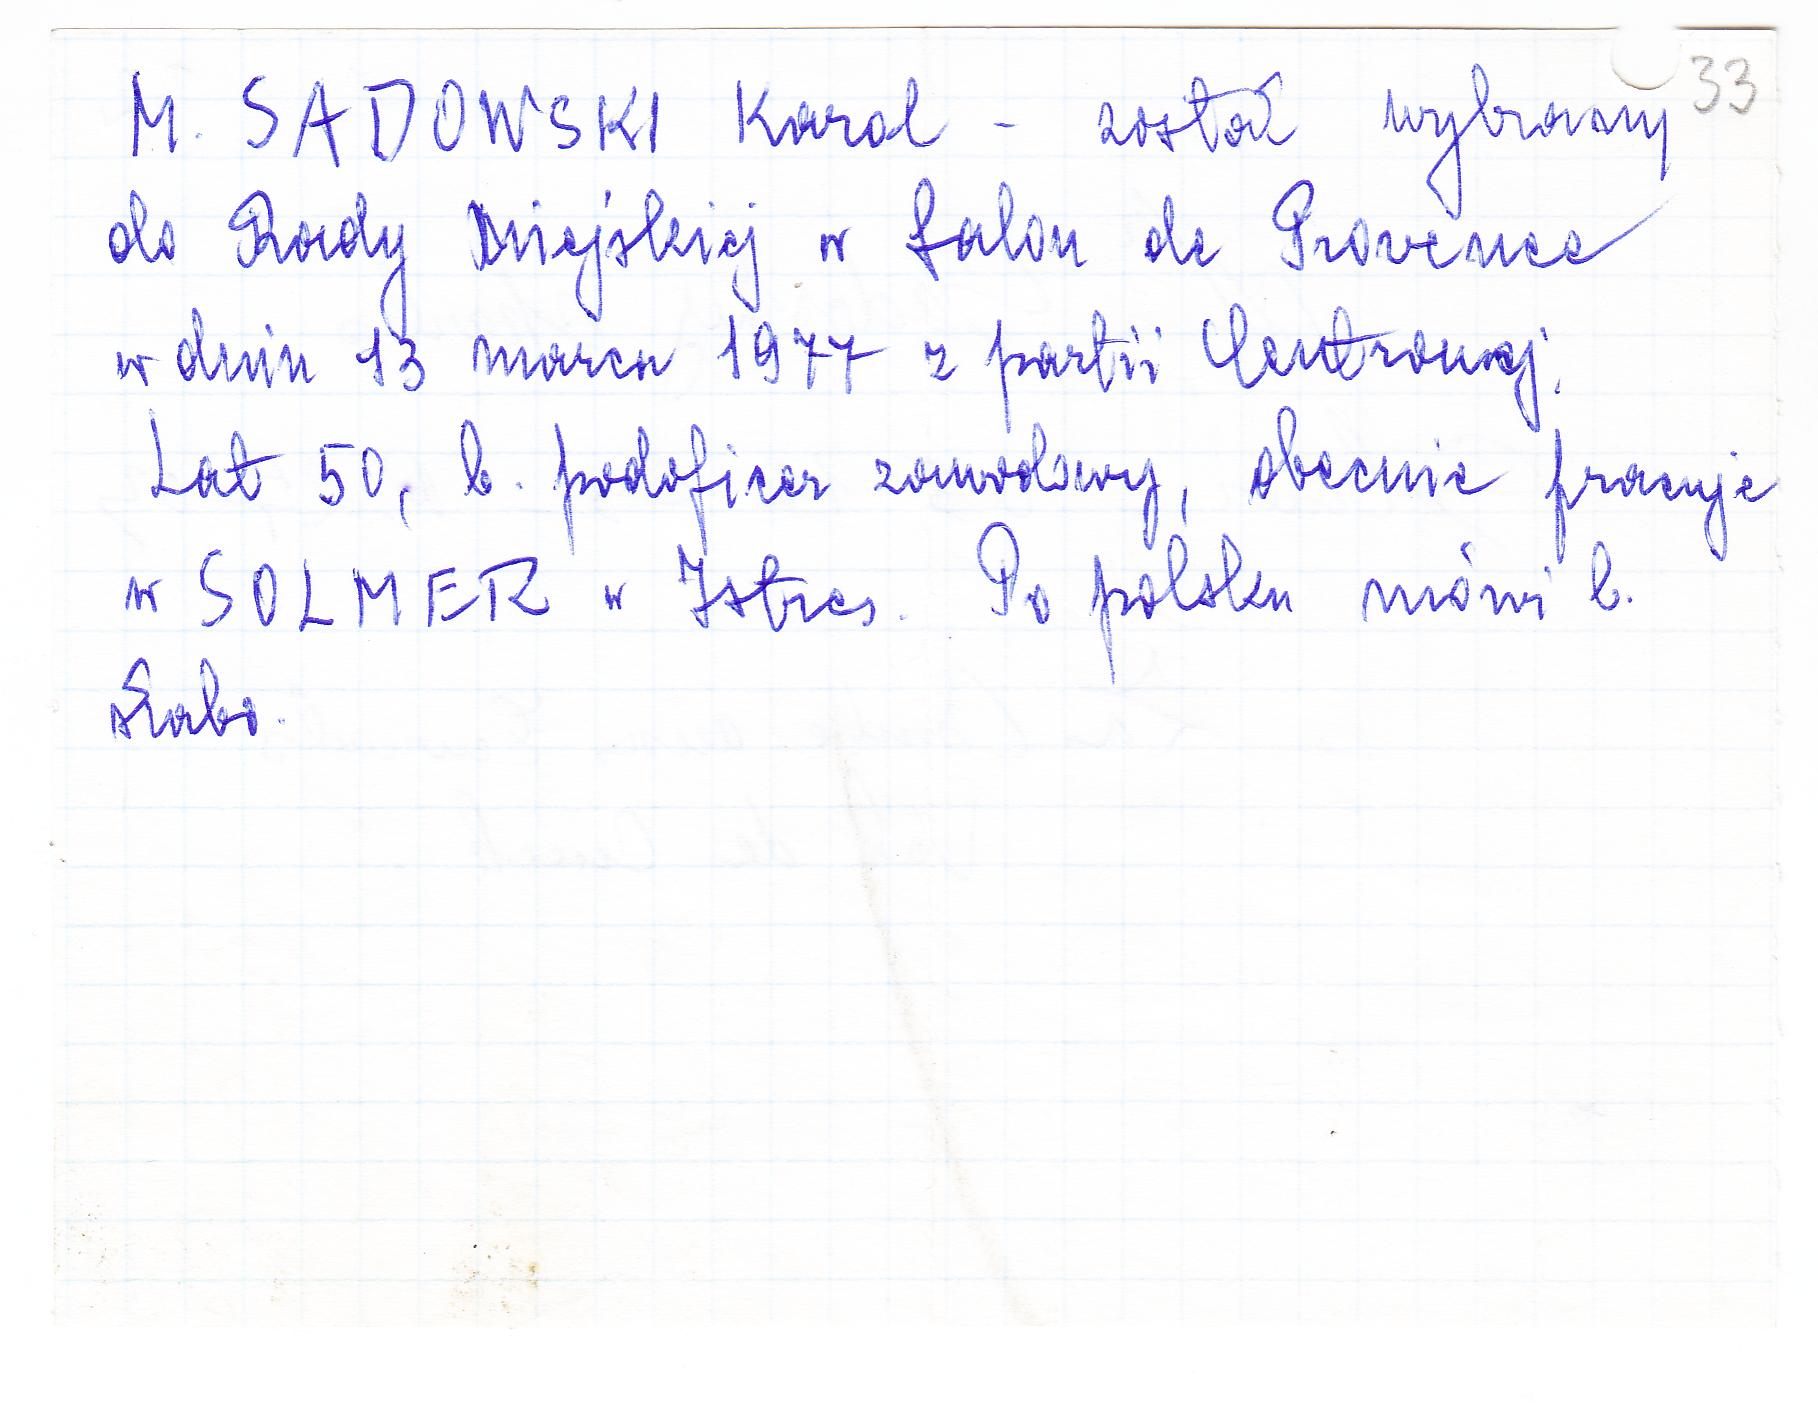 33
M. SADOWSKI Karol - został wybrany
do Rady Miejskiej w Salon de Provence
w dniu 13 marca 1977 z partii Centrowej.
Lat 50, b. podoficer zawodowy, obecnie pracuje
w SOLMER w Istres. Po polsku mówi b.
słabo.